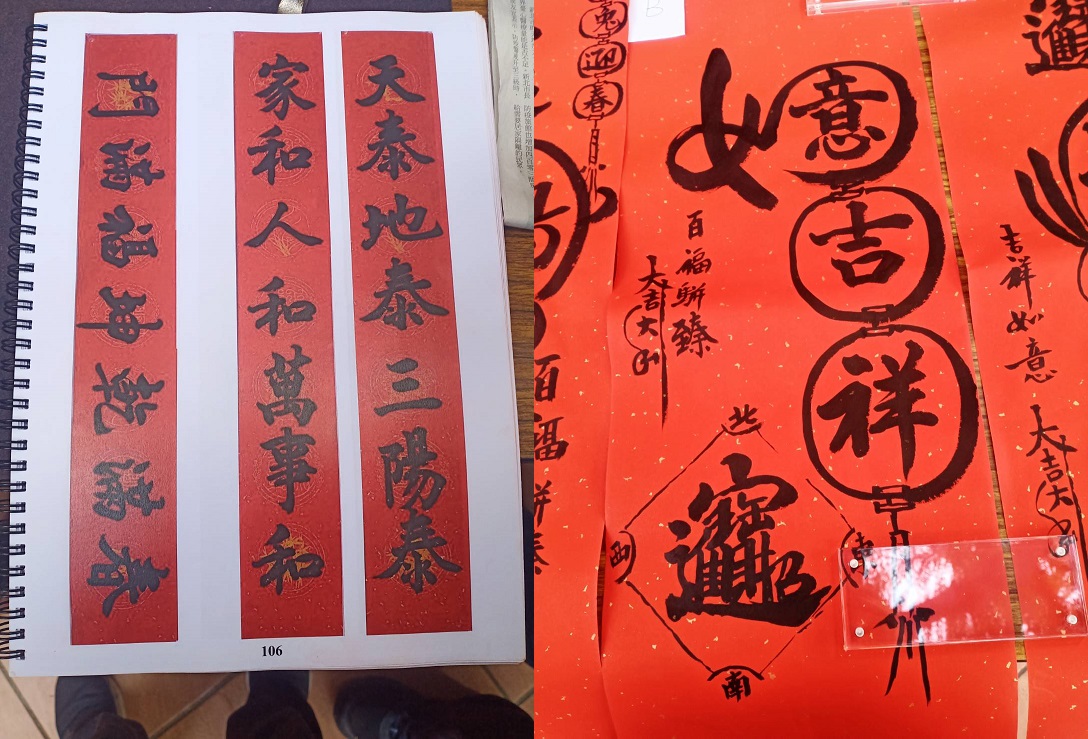 天泰地泰三陽泰
家和人和萬事和
春滿乾坤福滿門
106
兔迎春
百福駢臻
如意吉祥
百福駢臻
大吉大利
北
東
南
西
招財進寶
吉祥如意
大吉大